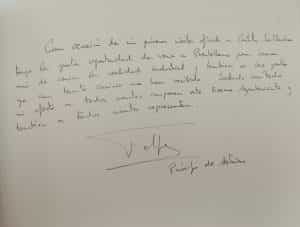 Con ocasión de mi primera visita oficial a Castilla La Mancha
tengo la grata oportunidad de venir a Puertollano para conocer
más de cerca su realidad industrial y también a las gentes
que con tanto cariño me han recibido. Saludo con todo
mi afecto a todos cuantos componen este Excmo Ayuntamiento y
también a todos cuantos representan.
Felipe
Príncipe de Asturias